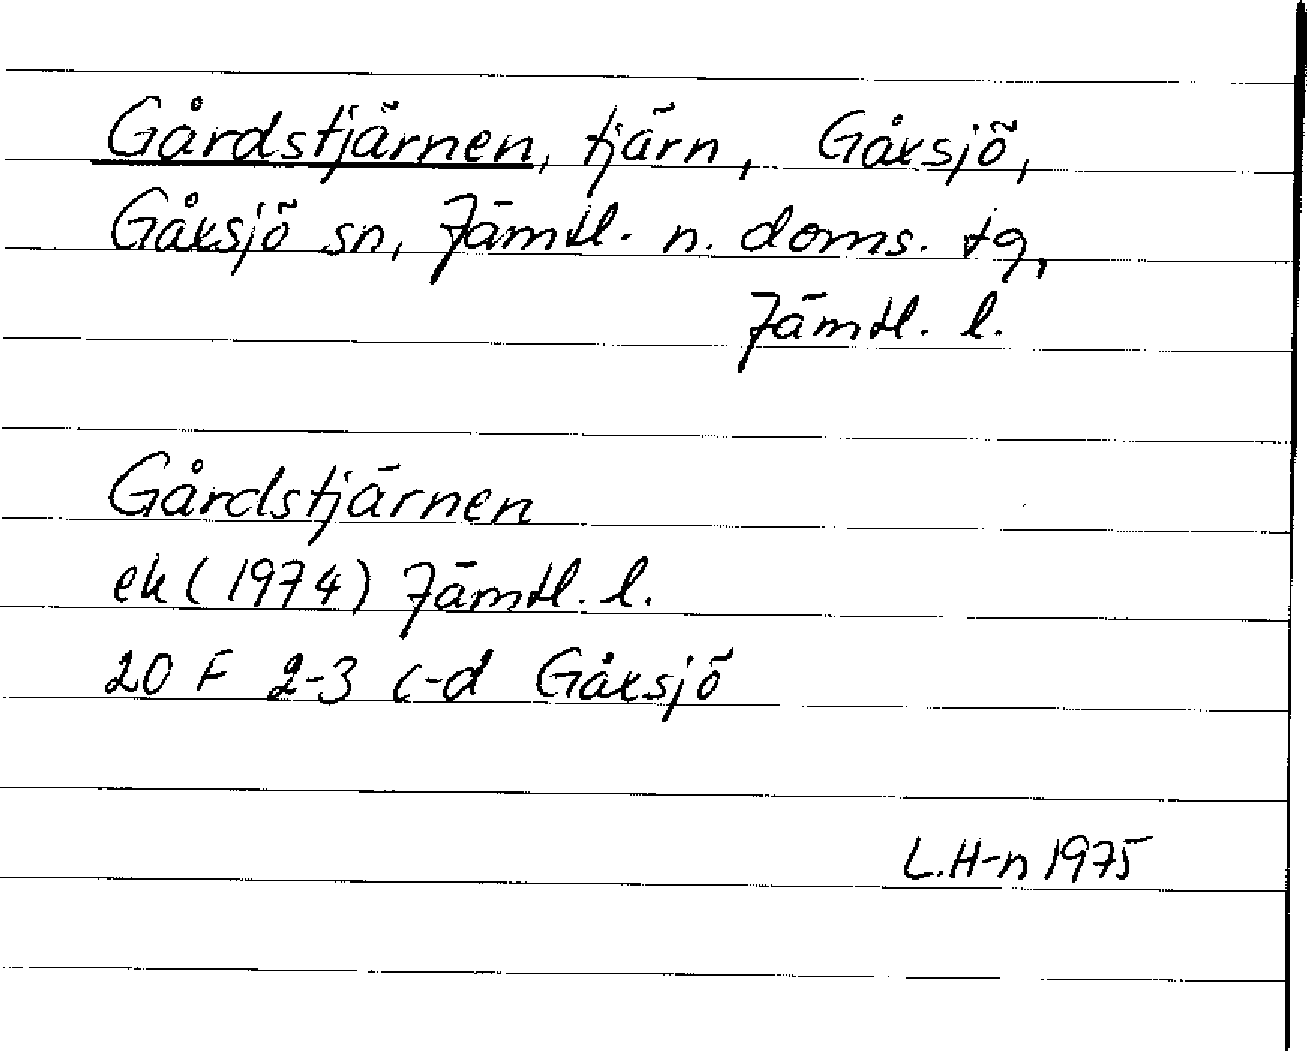 Gårdstjärnen, tjärn, Gåxsjö,
Gåxsjö sn, Jämtl. n. doms. tg,
Jämtl. l.
Gårdstjärnen
ek (1974) Jämtl. l.
20 F 2-3 c-d Gåxsjö
L.H-n 1975